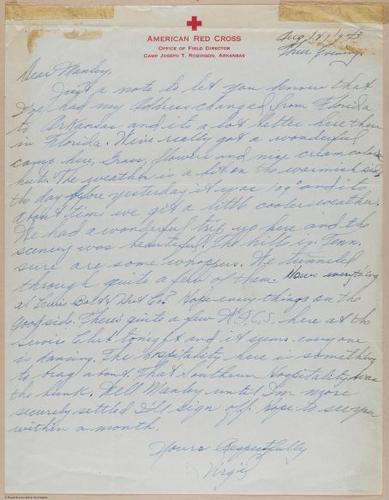 AMERICAN RED CROSS
OFFICE OF FIELD DIRECTOR
CAMP JOSEPH T. ROBINSON, ARKANSAS
Aug 19, 1943
Thur. Evening
Dear Manley,
Just a note to let you know that
I've had my address changed from Florida
to Arkansas and it's a lot better here than
in Florida. We've really got a wonderful
camp here, Grass, flowers and nice cream colored
huts. The weather is a bit on the warmish side
the day before yesterday it was 109° and it's
about time we get a little cooler weather.
We had a wonderful trip up here and the
scenery was beautiful. The hills in Tenn.
sure are some whoppers. We tunneled
through quite a few of them. How's everything
at Co? Hope everything's on the
goodside. There's quite a few here at the
service club tonight and it seems everyone
is dancing. The hospitality here is something
to brag about. That Southern Hospitality
the bunk. Well Manley until I'm more
securely settled I'll sign off. hope to see you
within a month.
Yours Respectfully
Virgil